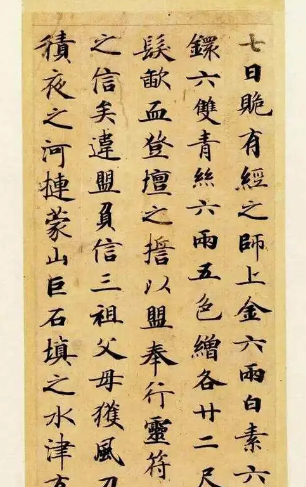 七日有經之師上金六兩白素六
鐶六雙青絲六兩五色繒各廿二尺
髮歃血登壇之擔以盟奉行靈符
之信矣違盟負信三祖父母獲風刀
積夜之河摙蒙山巨石填之水津有